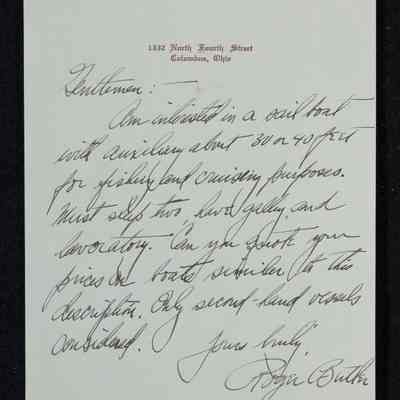 1332 North Fourth Street
Columbus, Ohio
Gentlemen: —
Am interested in a sail boat
with auxiliary about 30 or 40 feet
for fishing and cruising purposes.
Must sleep two, have galley, and
lavoratory. Can you quote your
prices on boats similar to this
description. Only second-hand vessels
considered.
Yours truly,
Roger Butler